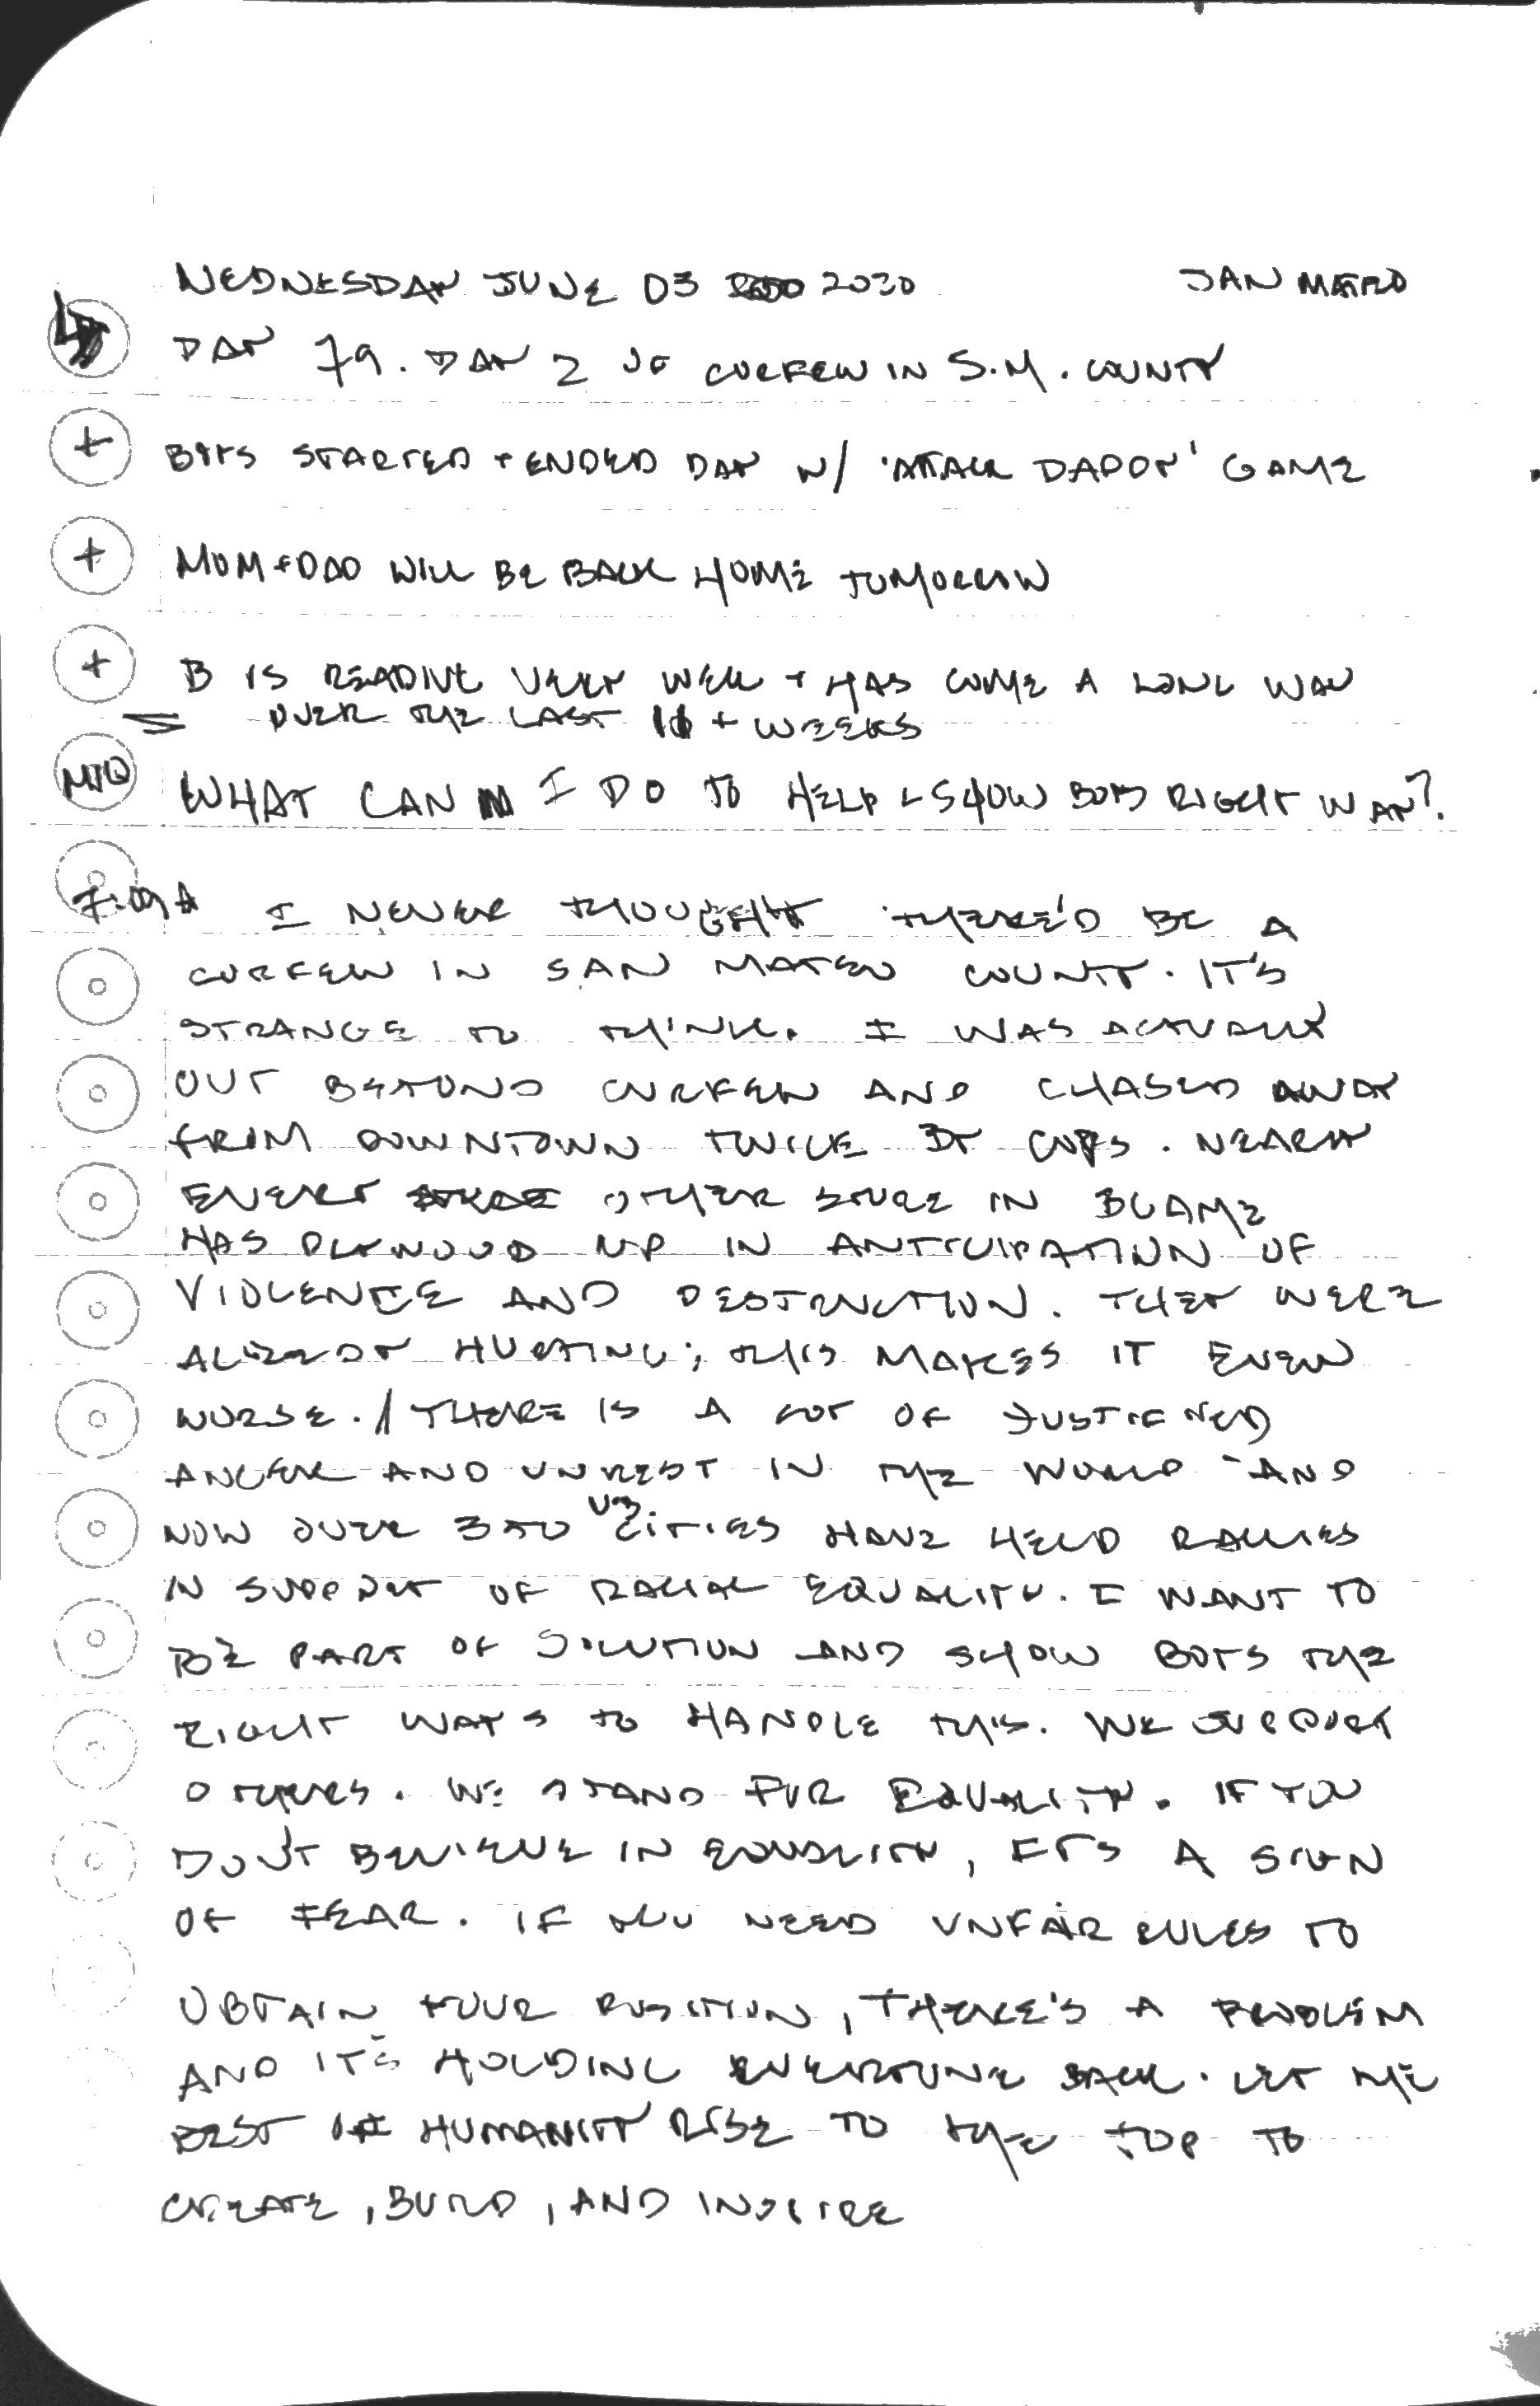 WEDNESDAY JUNE 03 2020 SAN MATEO
DAY 79. DAY 2 OF CURFEW IN S.M. COUNTY
+ BOYS STARTED + ENDED DAY W/ 'ATTACK DADDY' GAME
+ MOM + DAD WILL BE BACK HOME TOMORROW
+ B IS READING VERY WELL + HAS COME A LONG WAY
OVER THE LAST 10 + WEEKS
MIQ WHAT CAN I DO TO HELP + SHOW BOYS RIGHT WAY?
7:09A I NEVER THOUGHT THERE'D BE A
CURFEW IN SAN MATEO COUNTY. IT'S
STRANGE TO THINK. I WAS ACTUALLY
OUT BEYOND CURFEW AND CHASED AWAY
FROM DOWNTOWN TWICE BY COPS. NEARLY
EVERY OTHER STORE IN BGAME
HAS PLYWOOD UP IN ANTICIPATION OF
VIOLENCE AND DESTRUCTION. THEY WERE
ALREADY HURTING; THIS MAKES IT EVEN
WORSE. // THERE IS A LOT OF JUSTIFIED
ANGER AND UNREST IN THE WORLD - AND
NOW OVER 350 US CITIES HAVE HELD RALLIES
IN SUPPORT OF RACIAL EQUALITY. I WANT TO
BE PART OF SOLUTION AND SHOW BOYS THE
RIGHT WAYS TO HANDLE THIS. WE SUPPORT
OTHERS. WE STAND FOR EQUALITY. IF YOU
DON'T BELIEVE IN EQUALITY, IT'S A SIGN
OF FEAR. IF YOU NEED UNFAIR RULES TO
OBTAIN YOUR POSITION, THERE'S A PROBLEM
AND IT'S HOLDING EVERYONE BACK. LET THE
BEST OF HUMANITY RISE TO THE TOP TO
CREATE, BUILD, AND INSPIRE